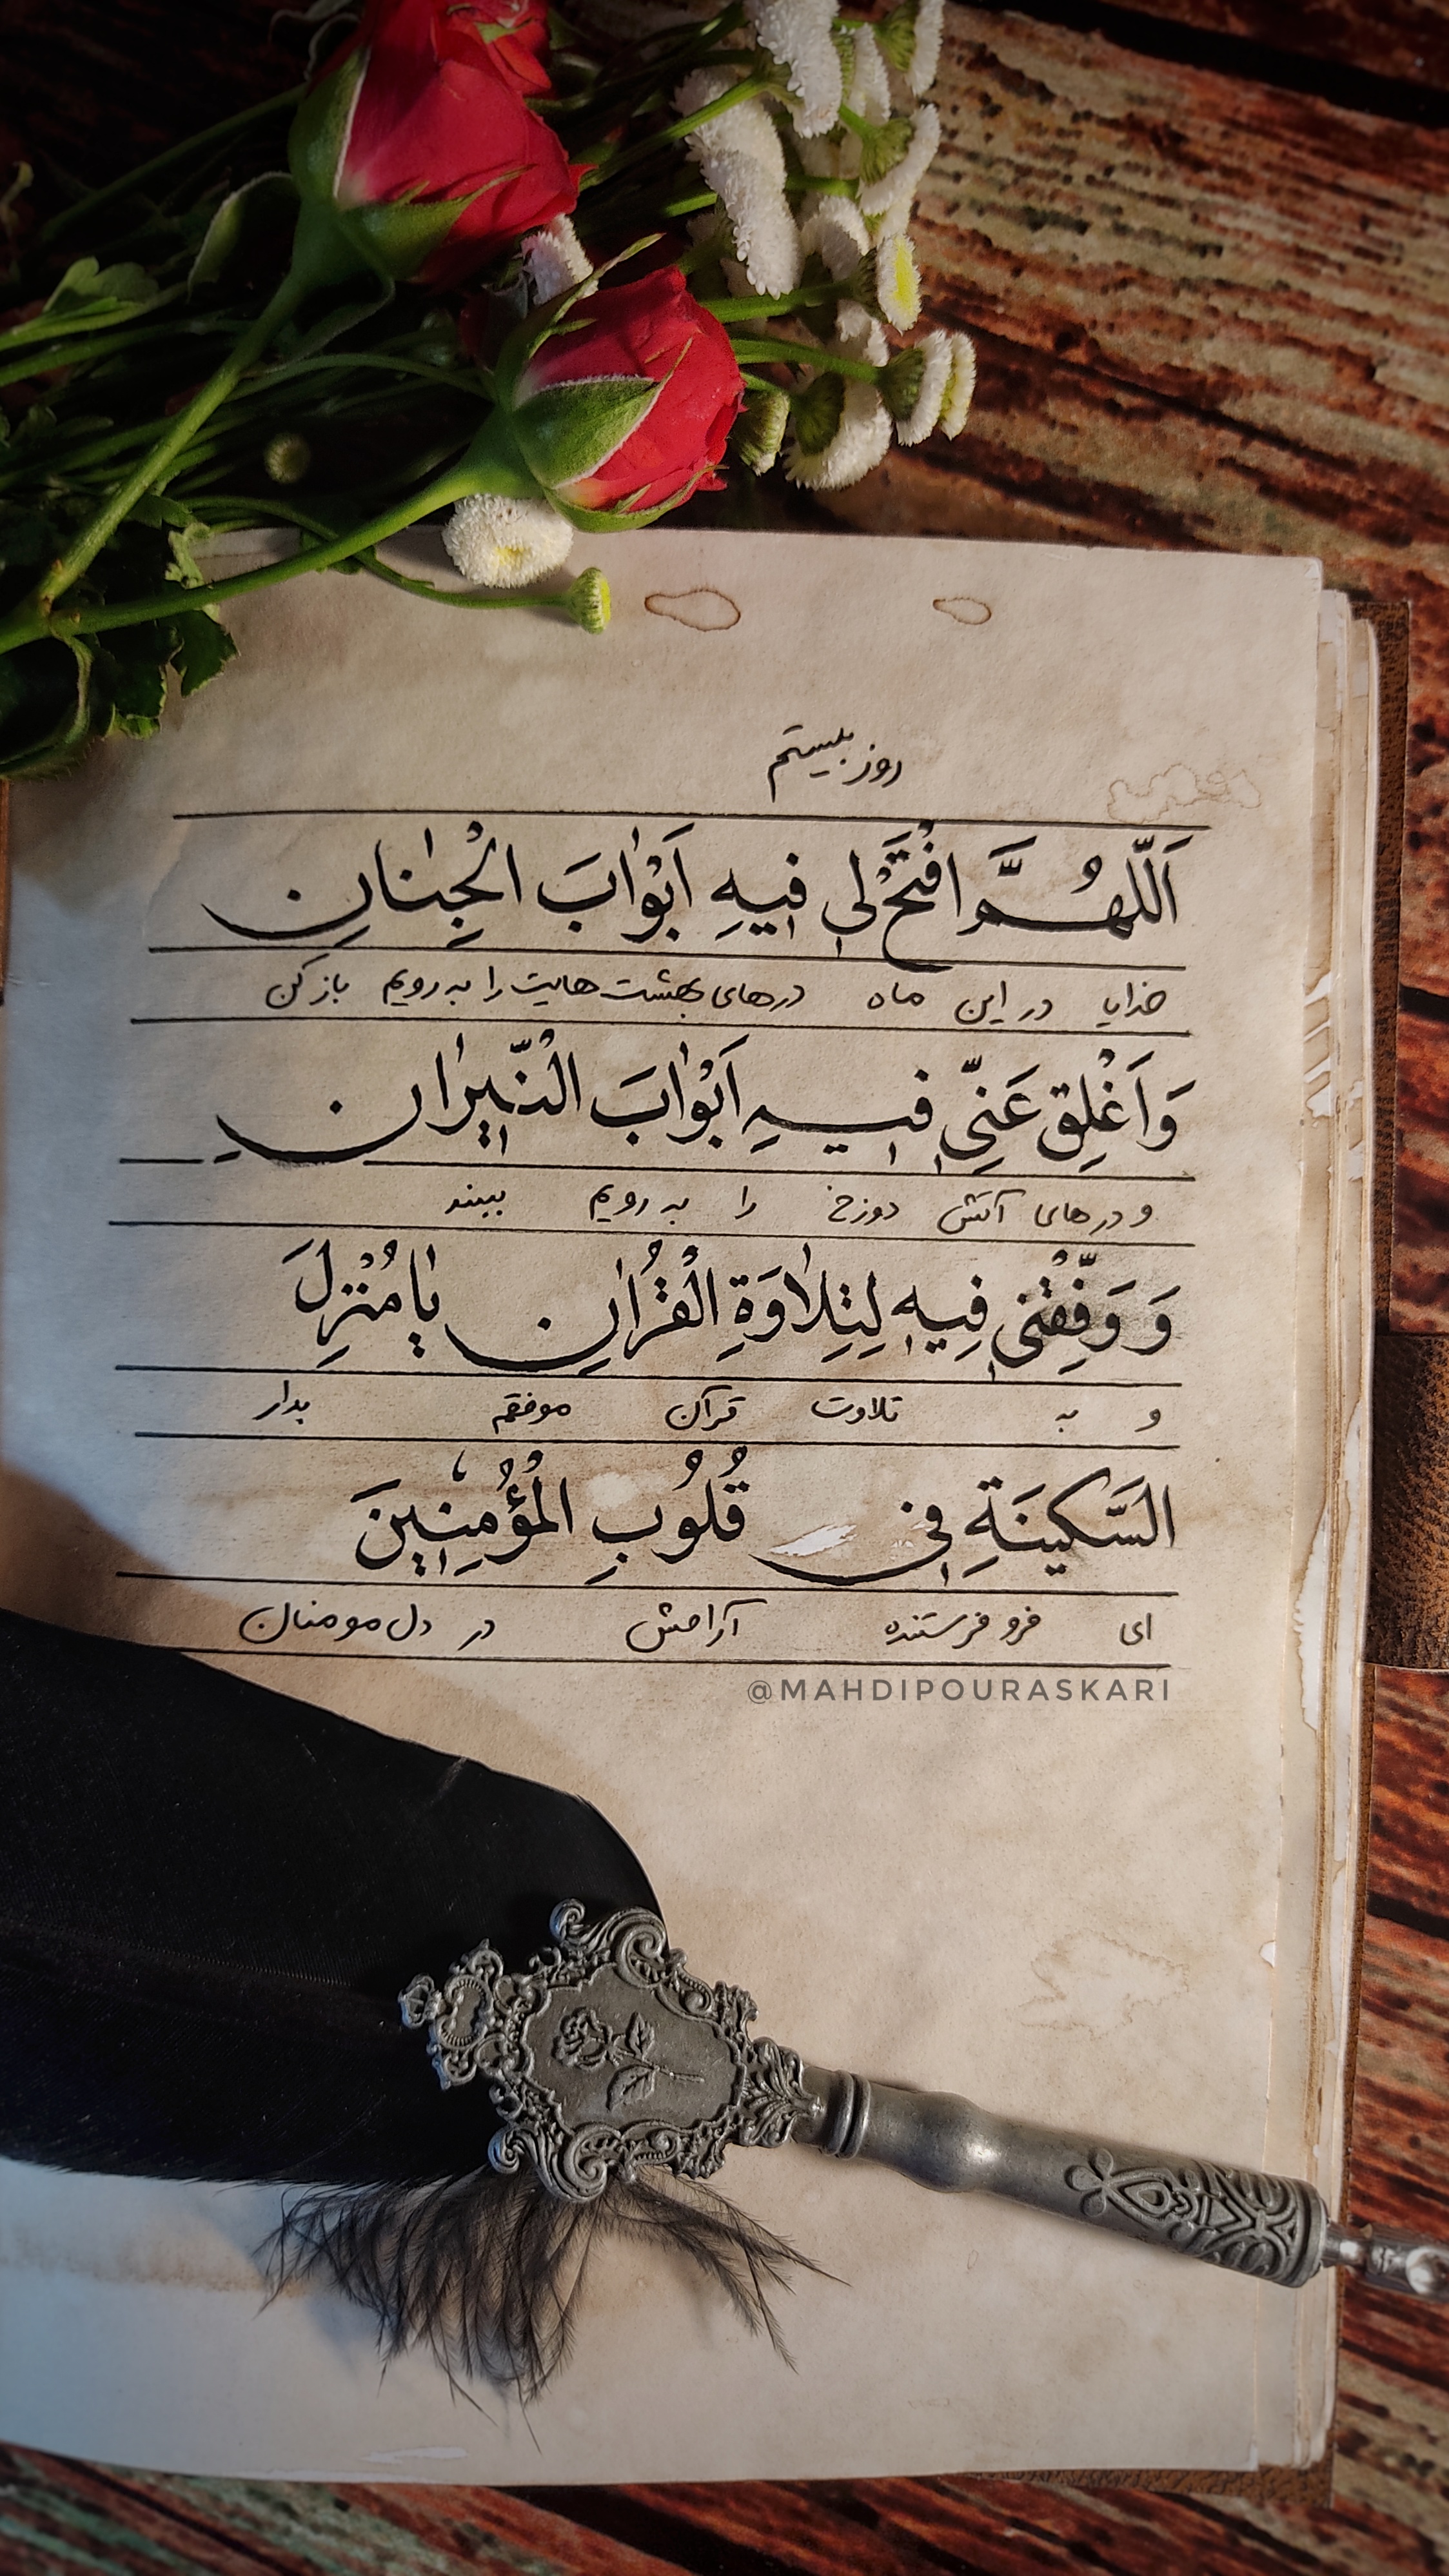 روز بیستم
اَللّٰهُمَّ افْتَحْ لی فیهِ اَبْوٰابَ الْجِنٰانِ
خدایا در این ماه درهای بهشت هایت را به رویم باز کن
وَاَغْلِق عَنّی فیهِ اَبْوٰابَ النّیرٰانِ
و درهای آتش دوزخ را به رویم ببند
وَ وَفِّقْنی فیهِ لِتِلٰاوَةِ الْقُرٰانِ یٰا مُنْزِلَ
و به تلاوت قرآن موفقم بدار
السَّکینَةِ فی قُلُوبِ الْمُؤْمِنینَ
ای فرو فرستنده آرامش در دل مومنان
@MAHDIPOURASKARI